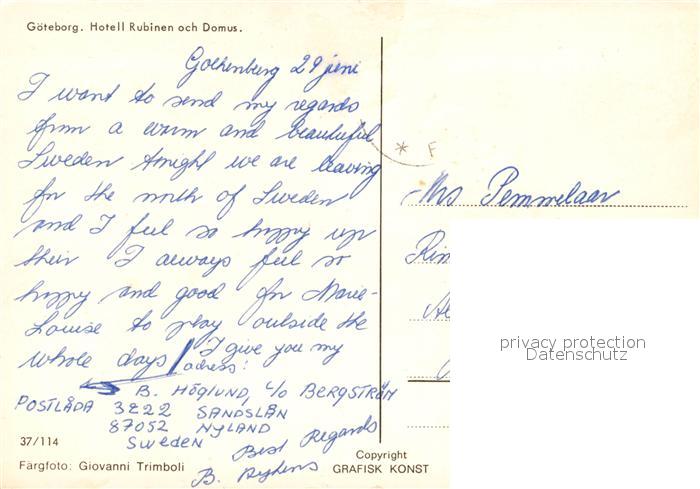 Göteborg. Hotell Rubinen och Domus.
Gothenburg 29 juni
I want to send my regards
from a warm and beautuful
Sweden tonight we are leaving
for the north of Sweden
and I feel so happy up
their I always feel so
happy and good for Marie-
Louise to play outside the
whole days / I give you my
adress:
B. HÖGLUND, c/o BERGSTRÖM
POSTLÅDA 3222 SANDSLÅN
87052 NYLAND
SWEDEN
Best Regards
B.
37/114
Färgfoto: Giovanni Trimboli
Copyright
GRAFISK KONST
* F
Mrs Pemmelaar
privacy protection
Datenschutz